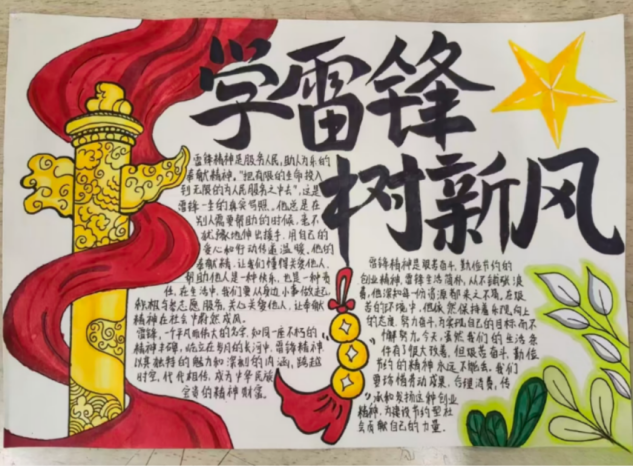 学雷锋
树新风
雷锋精神是服务人民,助人为乐的
奉献精神。"把有限的生命投入
到无限的为人民服务之中去",这是
雷锋一生的真实写照。他总是在
别人需要帮助的时候,毫不
犹豫地伸出援手,用自己的
爱心和行动传递温暖。他的
奉献精,让我们懂得关爱他人,
帮助他人是一种快乐,也是一种责
任。在生活中,我们要从身边小事做起,
积极参与志愿服务,关心关爱他人,让奉献
精神在社会中蔚然成风。
雷锋,一个平凡而伟大的名字,如同一座不朽的
精神丰碑,屹立在岁月的长河中。雷锋精神
以其独特的魅力和深刻的内涵,跨越
时空,代代相传,成为中华民族
宝贵的精神财富。
雷锋精神是艰苦奋斗,勤俭节约的
创业精神。雷锋生活简朴,从不铺张浪
费,他深知每一份资源都来之不易。在艰
苦的环境中,他依然保持着乐观向上
的态度,努力奋斗,为实现自己的目标而不
懈努力。今天,虽然我们的生活条
件有了很大改善,但艰苦奋斗、勤俭
节约的精神永远不能丢。我们
要珍惜劳动成果,合理消费,传
承和发扬这种创业
精神,为建设节约型社
会贡献自己的力量。